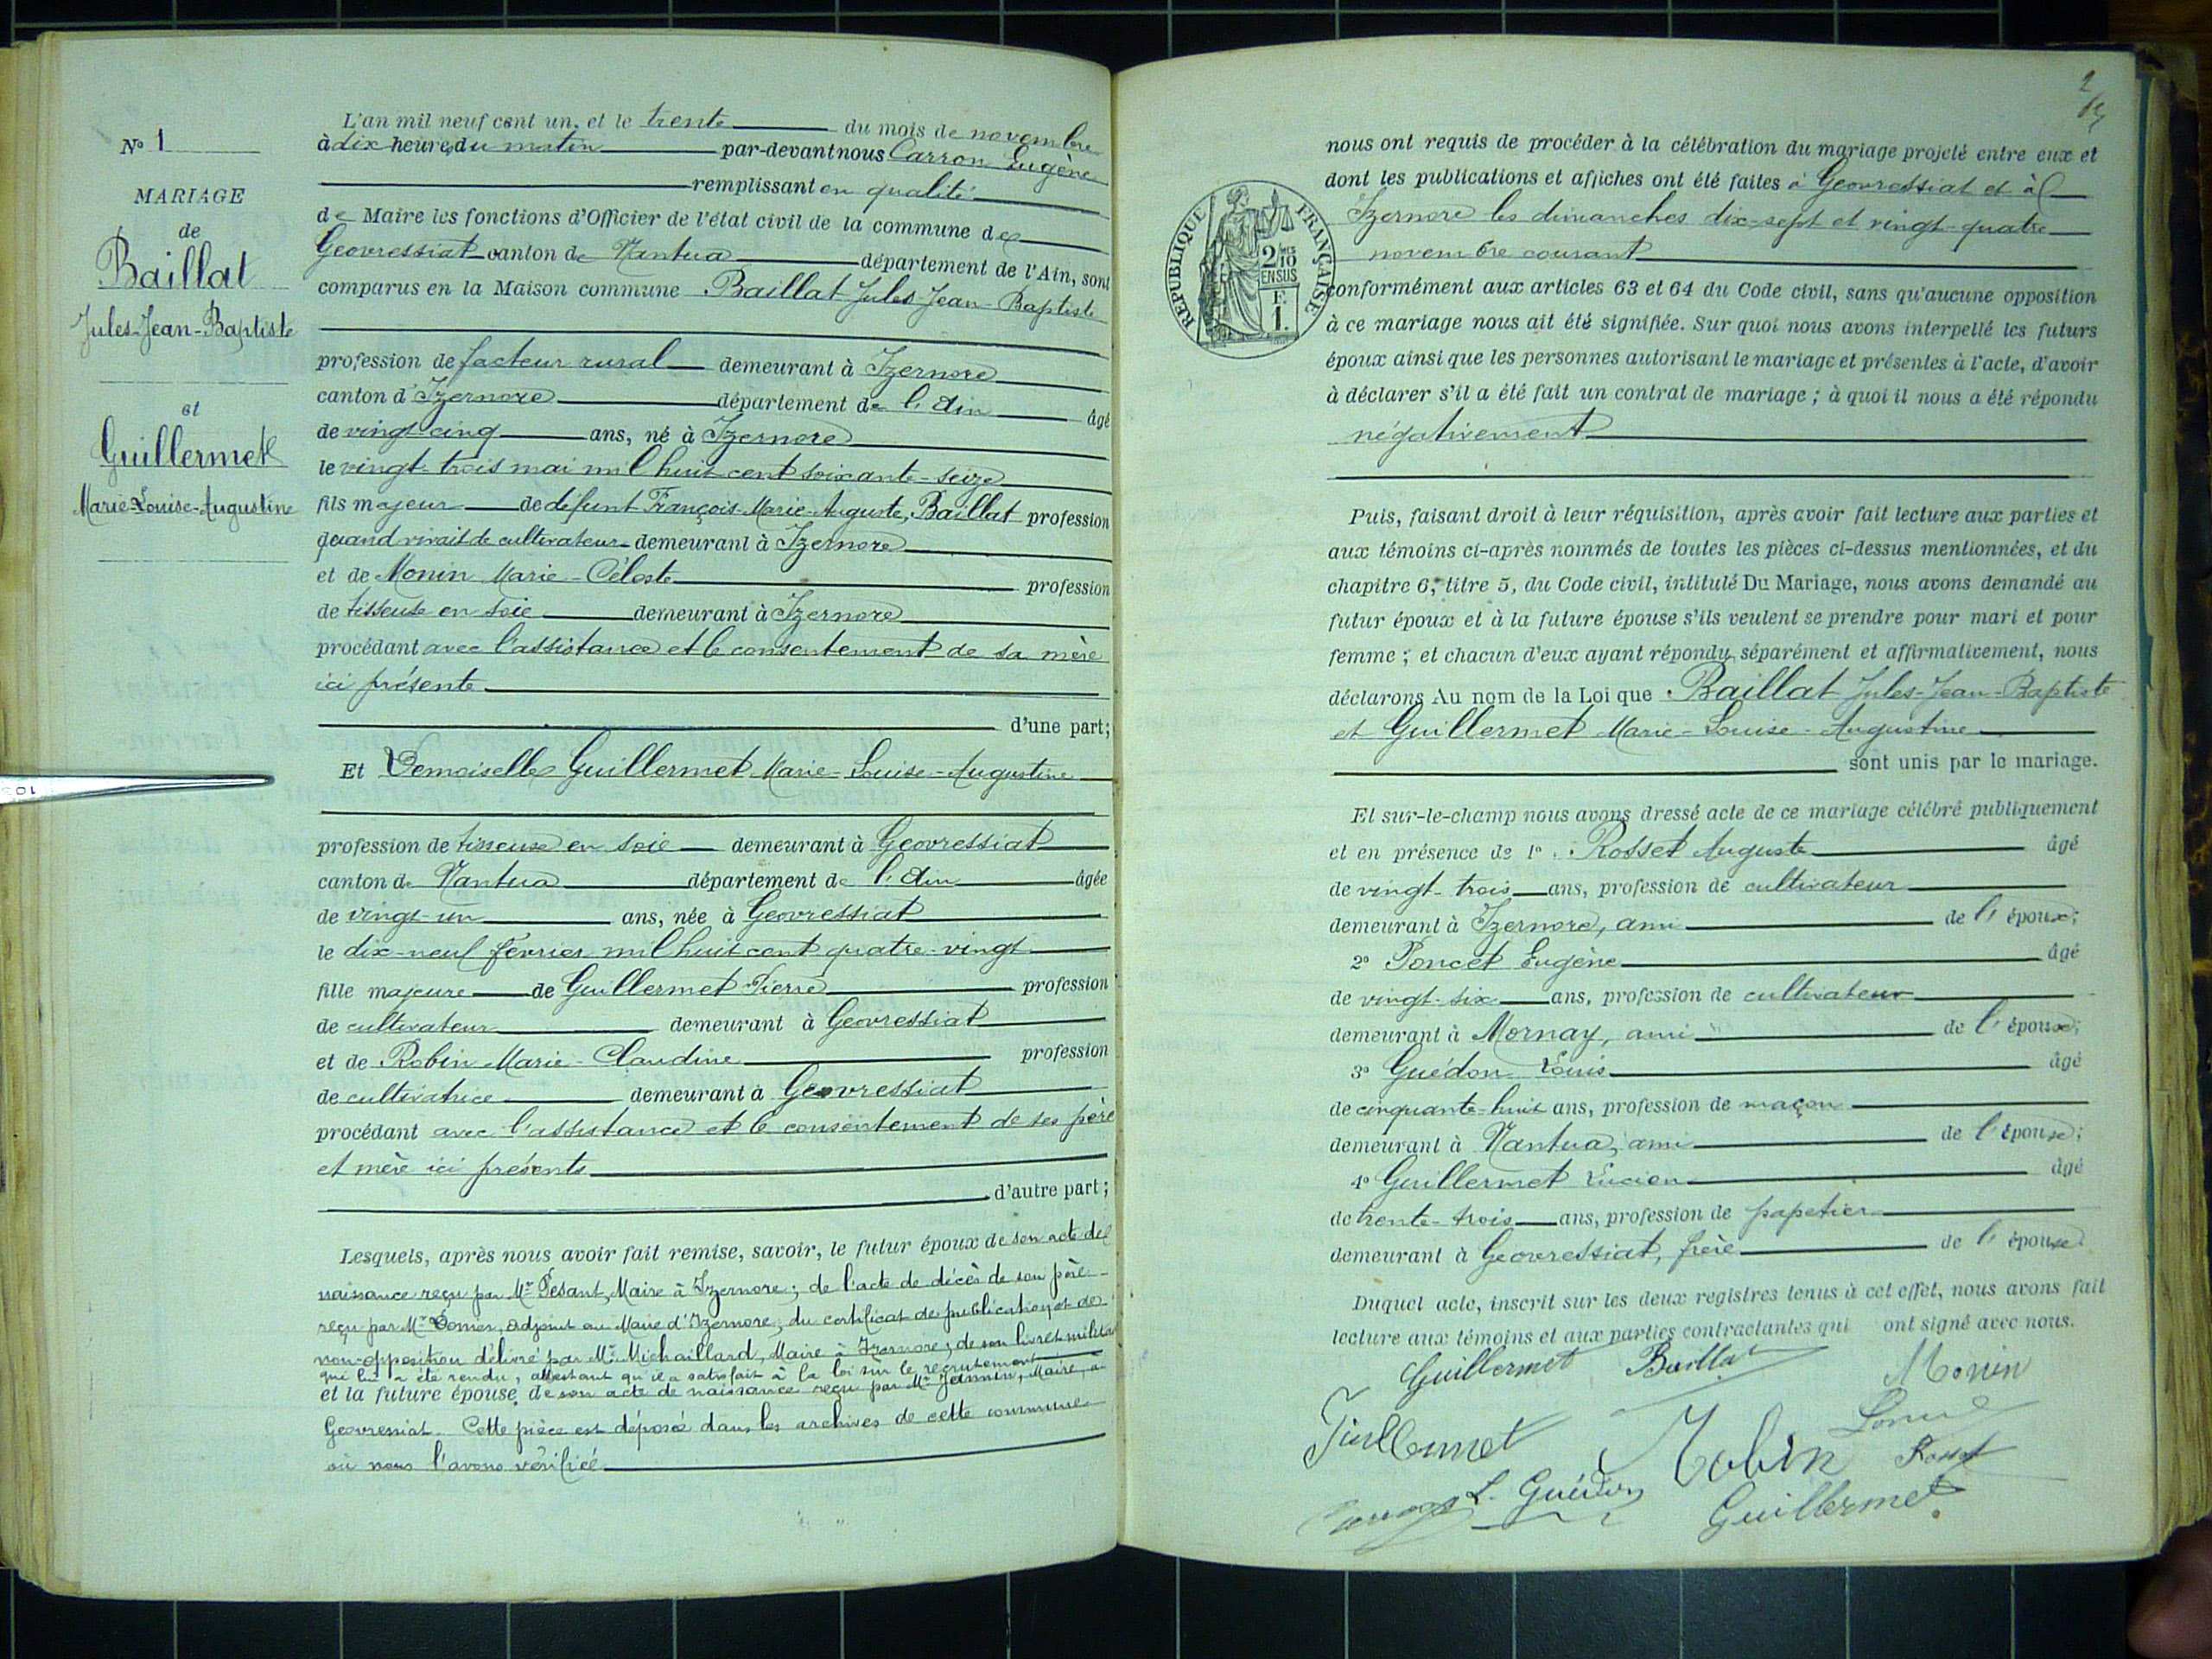 N° 1
MARIAGE
de
Baillat
Jules-Jean-Baptiste
et
Guillermet
Marie-Louise-Augustine
L'an mil neuf cent un, et le trente du mois de novembre
à dix heures du matin par-devant nous Carron Eugène
remplissant en qualité
de Maire les fonctions d'Officier de l'état civil de la commune de
Geovressiat canton de Nantua département de l'Ain, sont
comparus en la Maison commune Baillat Jules Jean-Baptiste
profession de facteur rural demeurant à Izernore
canton d'Izernore département de l'Ain âgé
de vingt-cinq ans, né à Izernore
le vingt-trois mai mil huit cent soixante-seize
fils majeur de défunt François-Marie-Auguste, Baillat profession
quand vivait de cultivateur demeurant à Izernore
et de Monin Marie-Céleste profession
de tisseuse en soie demeurant à Izernore
procédant avec l'assistance et le consentement de sa mère
ici présente
d'une part;
Et Demoiselle Guillermet Marie-Louise-Augustine
profession de tisseuse en soie demeurant à Geovressiat
canton de Nantua département de l'Ain âgée
de vingt-un ans, née à Geovressiat
le dix-neuf février mil huit cent quatre-vingt
fille majeure de Guillermet Pierre profession
de cultivateur demeurant à Geovressiat
et de Robin Marie-Claudine profession
de cultivatrice demeurant à Geovressiat
procédant avec l'assistance et le consentement de ses père
et mère ici présents
d'autre part;
Lesquels, après nous avoir fait remise, savoir, le futur époux de son acte de
naissance reçu par Mr Pésant, Maire à Izernore; de l'acte de décès de son père
reçu par Mr adjoint au Maire d'Izernore; du certificat de publication et de
non-opposition délivré par Mr Michaillard, Maire à Izernore; de son livret militaire
qui lui a été rendu, attestant qu'il a satisfait à la loi sur le recrutement
et la future épouse, de son acte de naissance reçu par Mr Jeannin, Maire, à
Geovressiat. Cette pièce est déposée dans les archives de cette commune
où nous l'avons vérifiée
2
RÉPUBLIQUE FRANÇAISE
2/10
EN SUS
F.
1.
nous ont requis de procéder à la célébration du mariage projeté entre eux et
dont les publications et affiches ont été faites à Geovressiat et à
Izernore les dimanches dix-sept et vingt-quatre
novembre courant
conformément aux articles 63 et 64 du Code civil, sans qu'aucune opposition
à ce mariage nous ait été signifiée. Sur quoi nous avons interpellé les futurs
époux ainsi que les personnes autorisant le mariage et présentes à l'acte, d'avoir
à déclarer s'il a été fait un contrat de mariage; à quoi il nous a été répondu
négativement
Puis, faisant droit à leur réquisition, après avoir fait lecture aux parties et
aux témoins ci-après nommés de toutes les pièces ci-dessus mentionnées, et du
chapitre 6, titre 5, du Code civil, intitulé Du Mariage, nous avons demandé au
futur époux et à la future épouse s'ils veulent se prendre pour mari et pour
femme; et chacun d'eux ayant répondu séparément et affirmativement, nous
déclarons Au nom de la Loi que Baillat Jules-Jean-Baptiste
et Guillermet Marie-Louise-Augustine
sont unis par le mariage.
Et sur-le-champ nous avons dressé acte de ce mariage célébré publiquement
et en présence de 1° Rosset Auguste âgé
de vingt-trois ans, profession de cultivateur
demeurant à Izernore, ami de l'époux;
2° Poncet Eugène âgé
de vingt-six ans, profession de cultivateur
demeurant à Mornay, ami de l'époux;
3° Guédon Louis âgé
de cinquante-huit ans, profession de maçon
demeurant à Nantua, ami de l'épouse;
4° Guillermet Lucien âgé
de trente-trois ans, profession de papetier
demeurant à Geovressiat, frère de l'épouse
Duquel acte, inscrit sur les deux registres tenus à cet effet, nous avons fait
lecture aux témoins et aux parties contractantes qui ont signé avec nous.
Guillermet Baillat Monin
Guillermet Robin Rosset
L. Guédon Guillermet